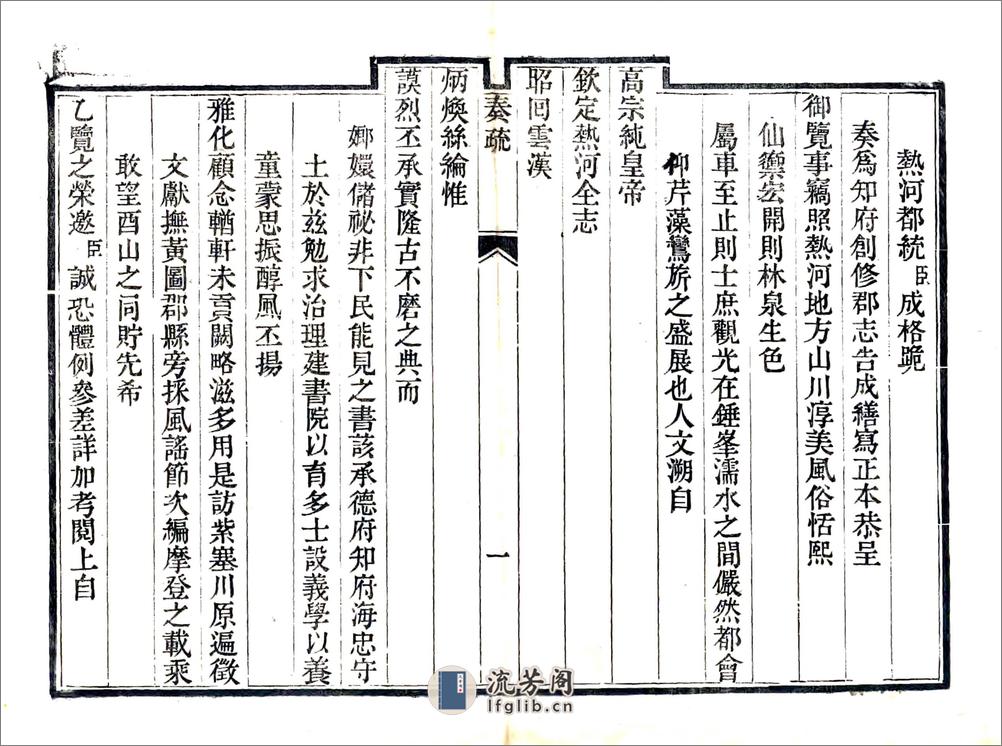 熱河都統臣成格跪
奏爲知府創修郡志告成繕寫正本恭呈
御覽事竊照熱河地方山川淳美風俗恬熙
仙籞宏開則林泉生色
屬車至止則士庶觀光在錘峯濡水之間儼然都會
仰芹藻鸞旂之盛展也人文溯自
高宗純皇帝
欽定熱河全志
昭回雲漢
奏疏
一
炳煥絲綸惟
謨烈丕承實隆古不磨之典而
嫏嬛儲祕非下民能見之書該承德府知府海忠守
土於兹勉求治理建書院以育多士設義學以養
童蒙思振醇風丕揚
雅化顧念輶軒未貢闕略滋多用是訪紫塞川原遍徵
文獻撫黃圖郡縣旁採風謠節次編摩登之載乘
敢望酉山之同貯先希
乙覽之榮邀臣誠恐體例參差詳加考閱上自
流芳阁
lfglib.cn